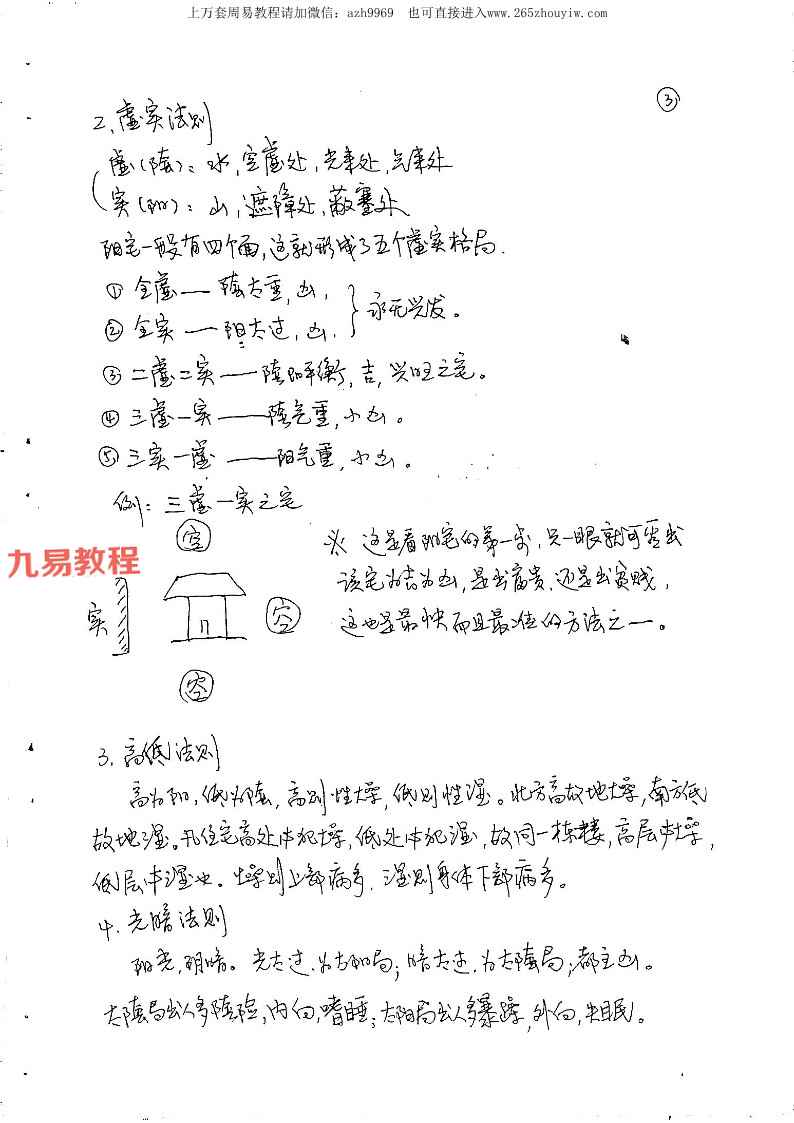 上万套周易教程请加微信：azh9969 也可直接进入www.265zhouyiw.com
③
2、虚实法则
虚(陰)：水，空虚处，光来处，气来处
实(阳)：山，遮障处，蔽塞处
阳宅一般有四个面，这就形成了五个虚实格局.
① 全虚——陰太重，凶，
② 全实——阳太过，凶，
永无兴发。
③ 二虚二实——陰阳平衡，吉，兴旺之宅。
④ 三虚一实——陰气重，小凶。
⑤ 三实一虚——阳气重，小凶。
例：三虚一实之宅
空
九易教程
实
空
空
※ 这是看阳宅的第一步，只一眼就可看出
该宅为吉为凶，是出富贵，还是出贫贱，
这也是最快而且最准的方法之一。
3. 高低法则
高为阳，低为陰，高则性燥，低则性湿。北方高故地燥，南方低
故地湿。凡住宅高处体犯燥，低处体犯湿，故同一栋楼，高层体燥，
低层体湿也。燥则上部病多，湿则身体下部病多。
4. 光暗法则
阳光，阴暗。光太过，为太阳局；暗太过，为太陰局；都主凶。
太陰局出人多陰险，内向，嗜睡；太阳局出人多暴躁，外向，失眠。